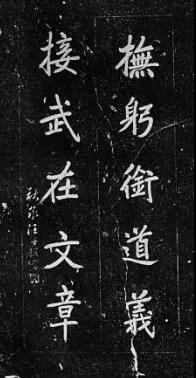 撫躬銜道義
接武在文章